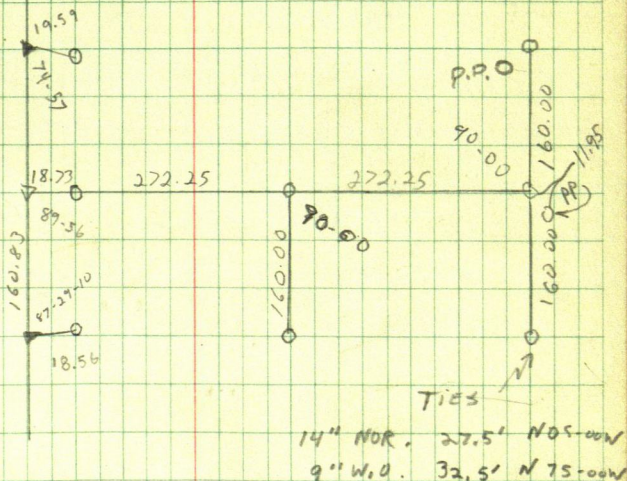 19.59
74-57
P.P.
160.00
90-00
11.95
18.73
272.25
272.25
PP
89-56
90-00
160.83
160.00
160.00
87-29-10
18.56
TIES
14" NOR. 27.5' N05-00W
9" W.O. 32.5' N75-00W